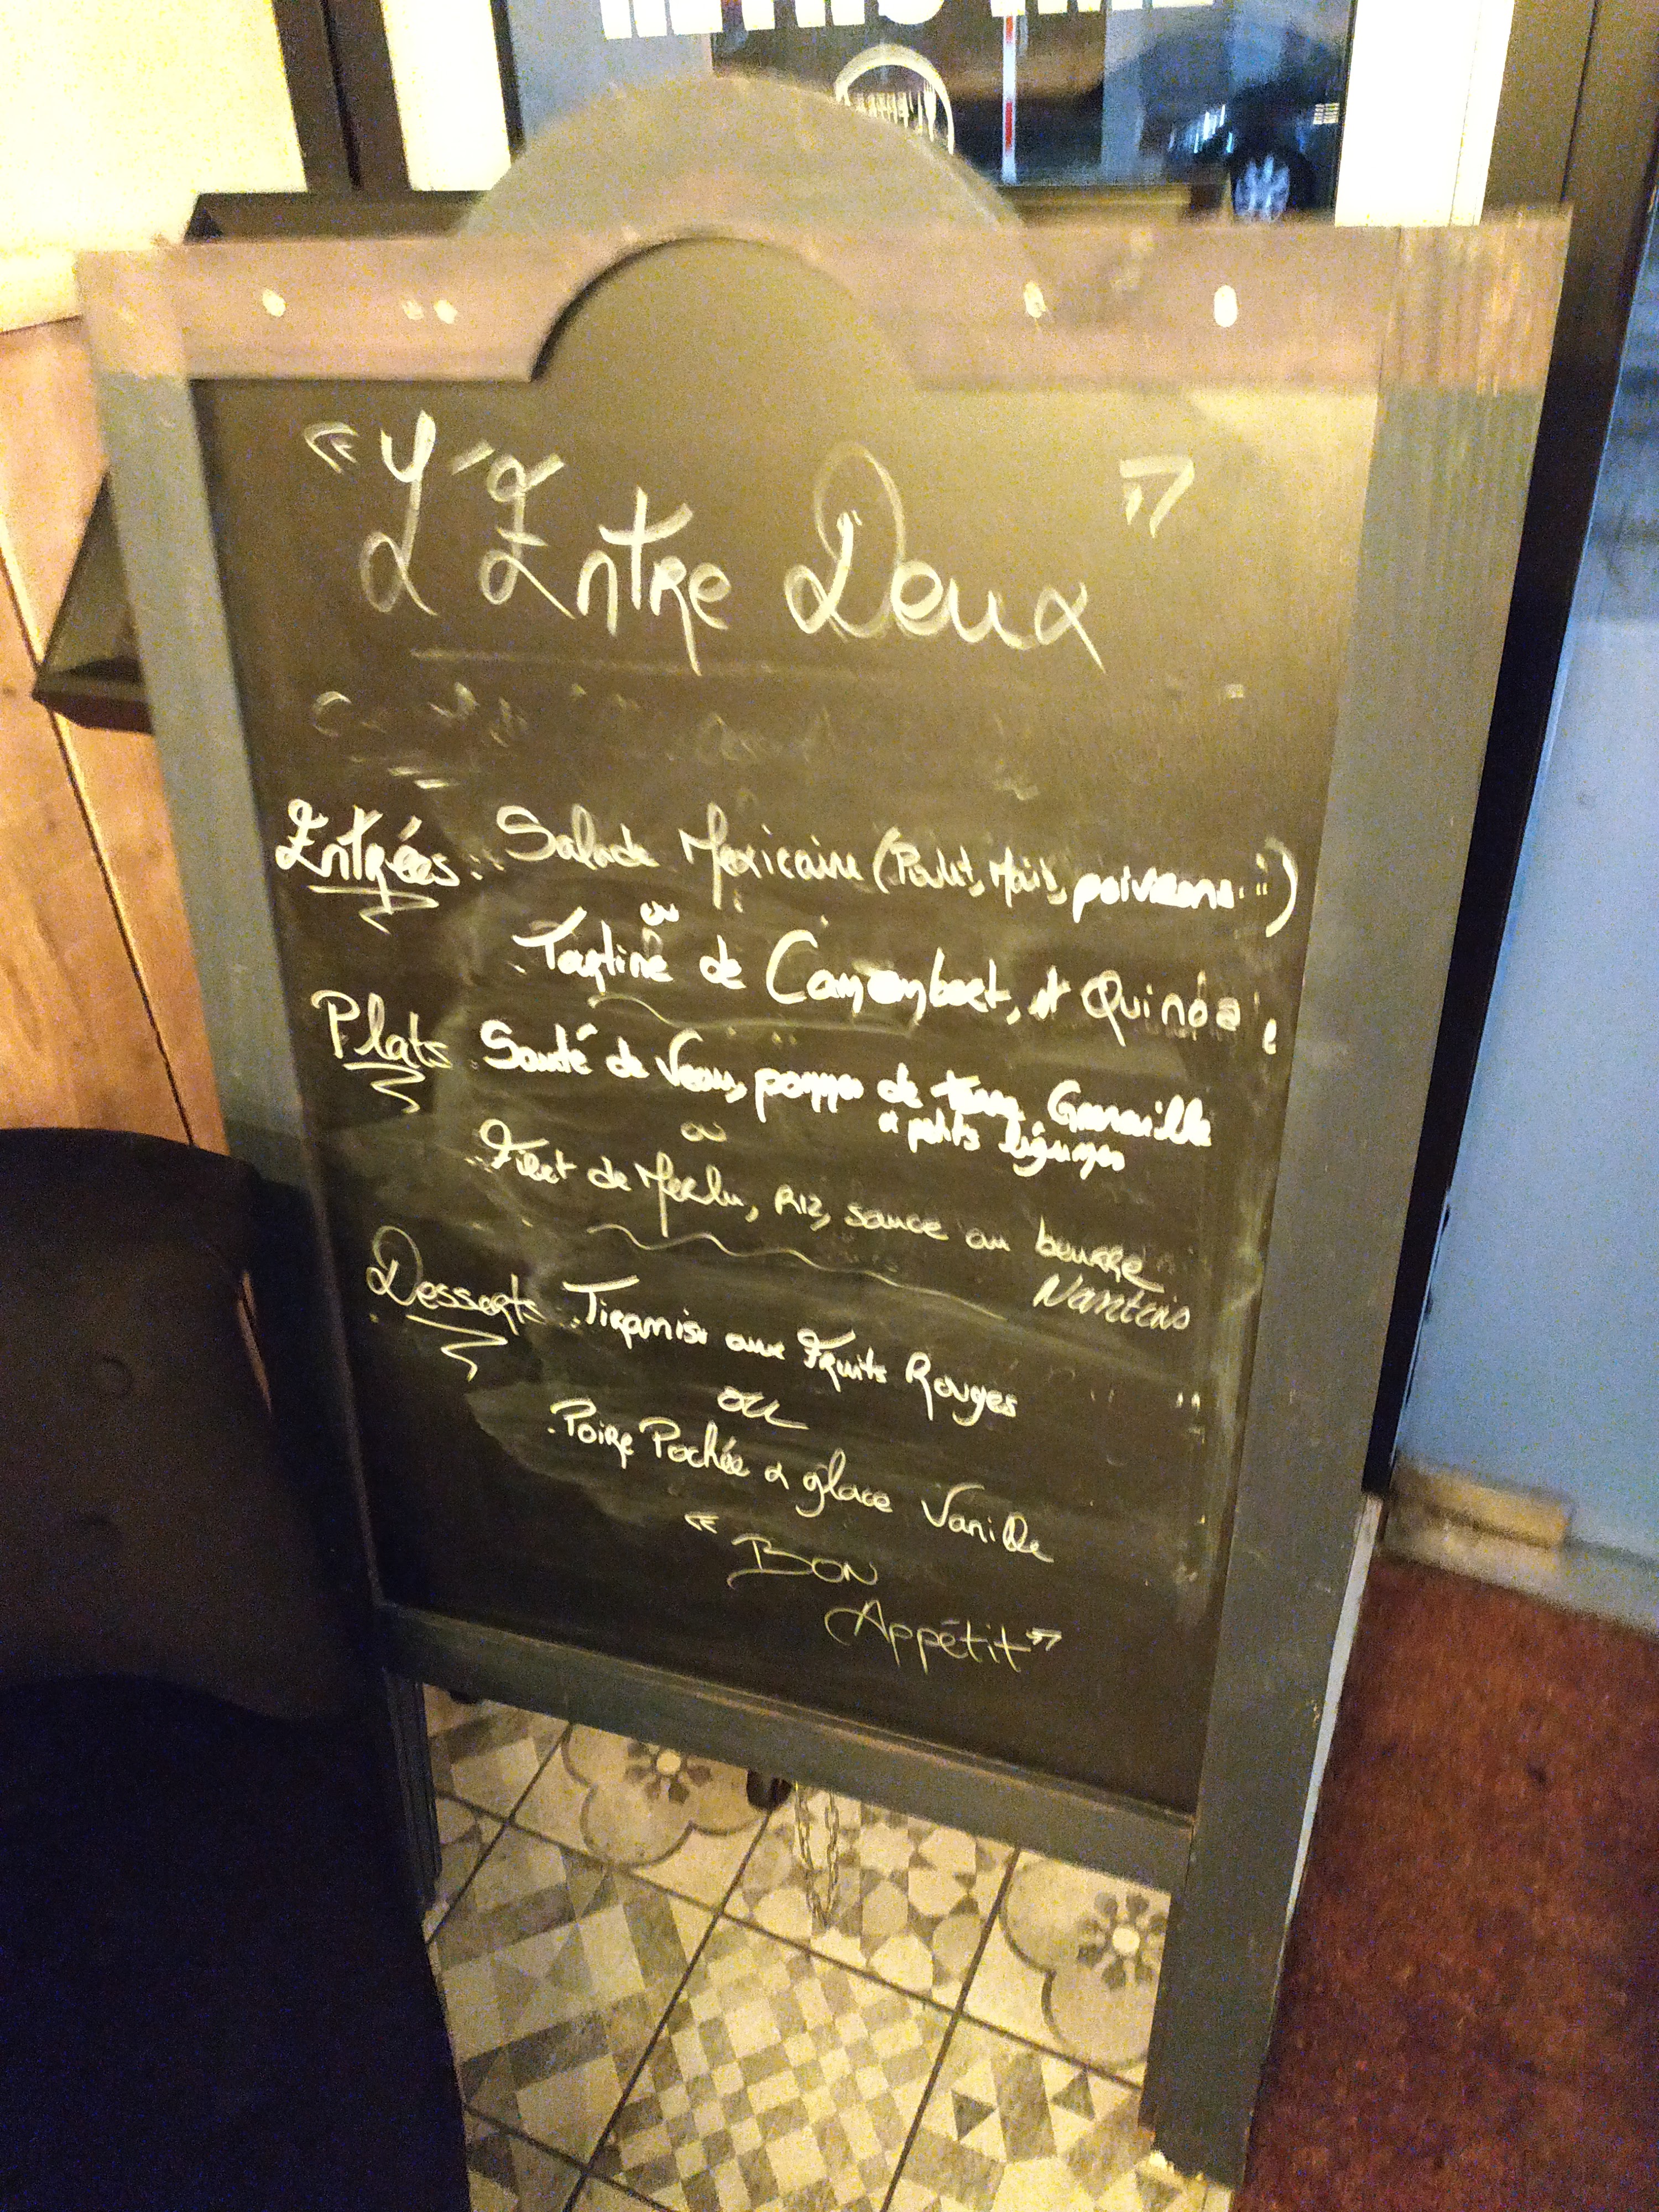 "L'Entre Deux"
Entrées: Salade Mexicaine (Poulet, Maïs, poivrons...)
ou
. Tartine de Camembert, et Quinoa
Plats . Sauté de Veau, pommes de terre Grenaille
& petits légumes
ou
. Filet de Merlu, Riz, sauce au beurre
Nantais
Desserts . Tiramisu aux Fruits Rouges
ou
. Poire Pochée & glace Vanille
"Bon
Appétit"